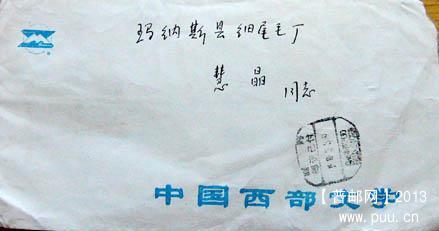 玛纳斯县细尾毛厂
慧晶 同志
中国西部文学
【普邮网】2013
www.puu.cn